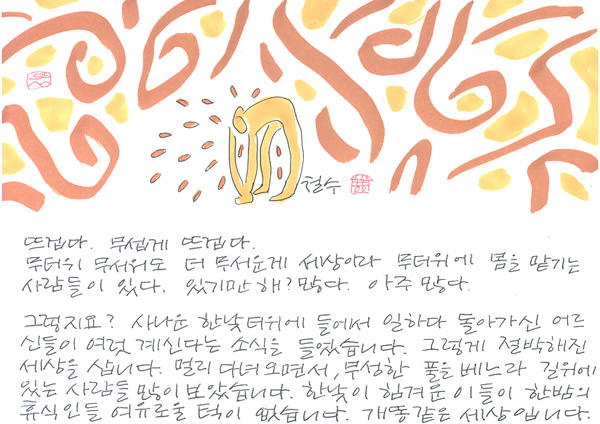 철수
뜨겁다. 무섭게 뜨겁다.
무더위 무서워도 더 무서운게 세상이라 무더위에 몸을 맡기는
사람들이 있다. 있기만 해? 많다. 아주 많다.
그렇지요? 사나운 한낮더위에 들에서 일하다 돌아가신 어르
신들이 여럿 계신다는 소식을 들었습니다. 그렇게 절박해진
세상을 삽니다. 멀리 다녀오면서, 무성한 풀을 베느라 길위에
있는 사람들 많이 보았습니다. 한낮이 힘겨운 이들이 한밤의
휴식인들 여유로울 턱이 없습니다. 개똥같은 세상입니다.